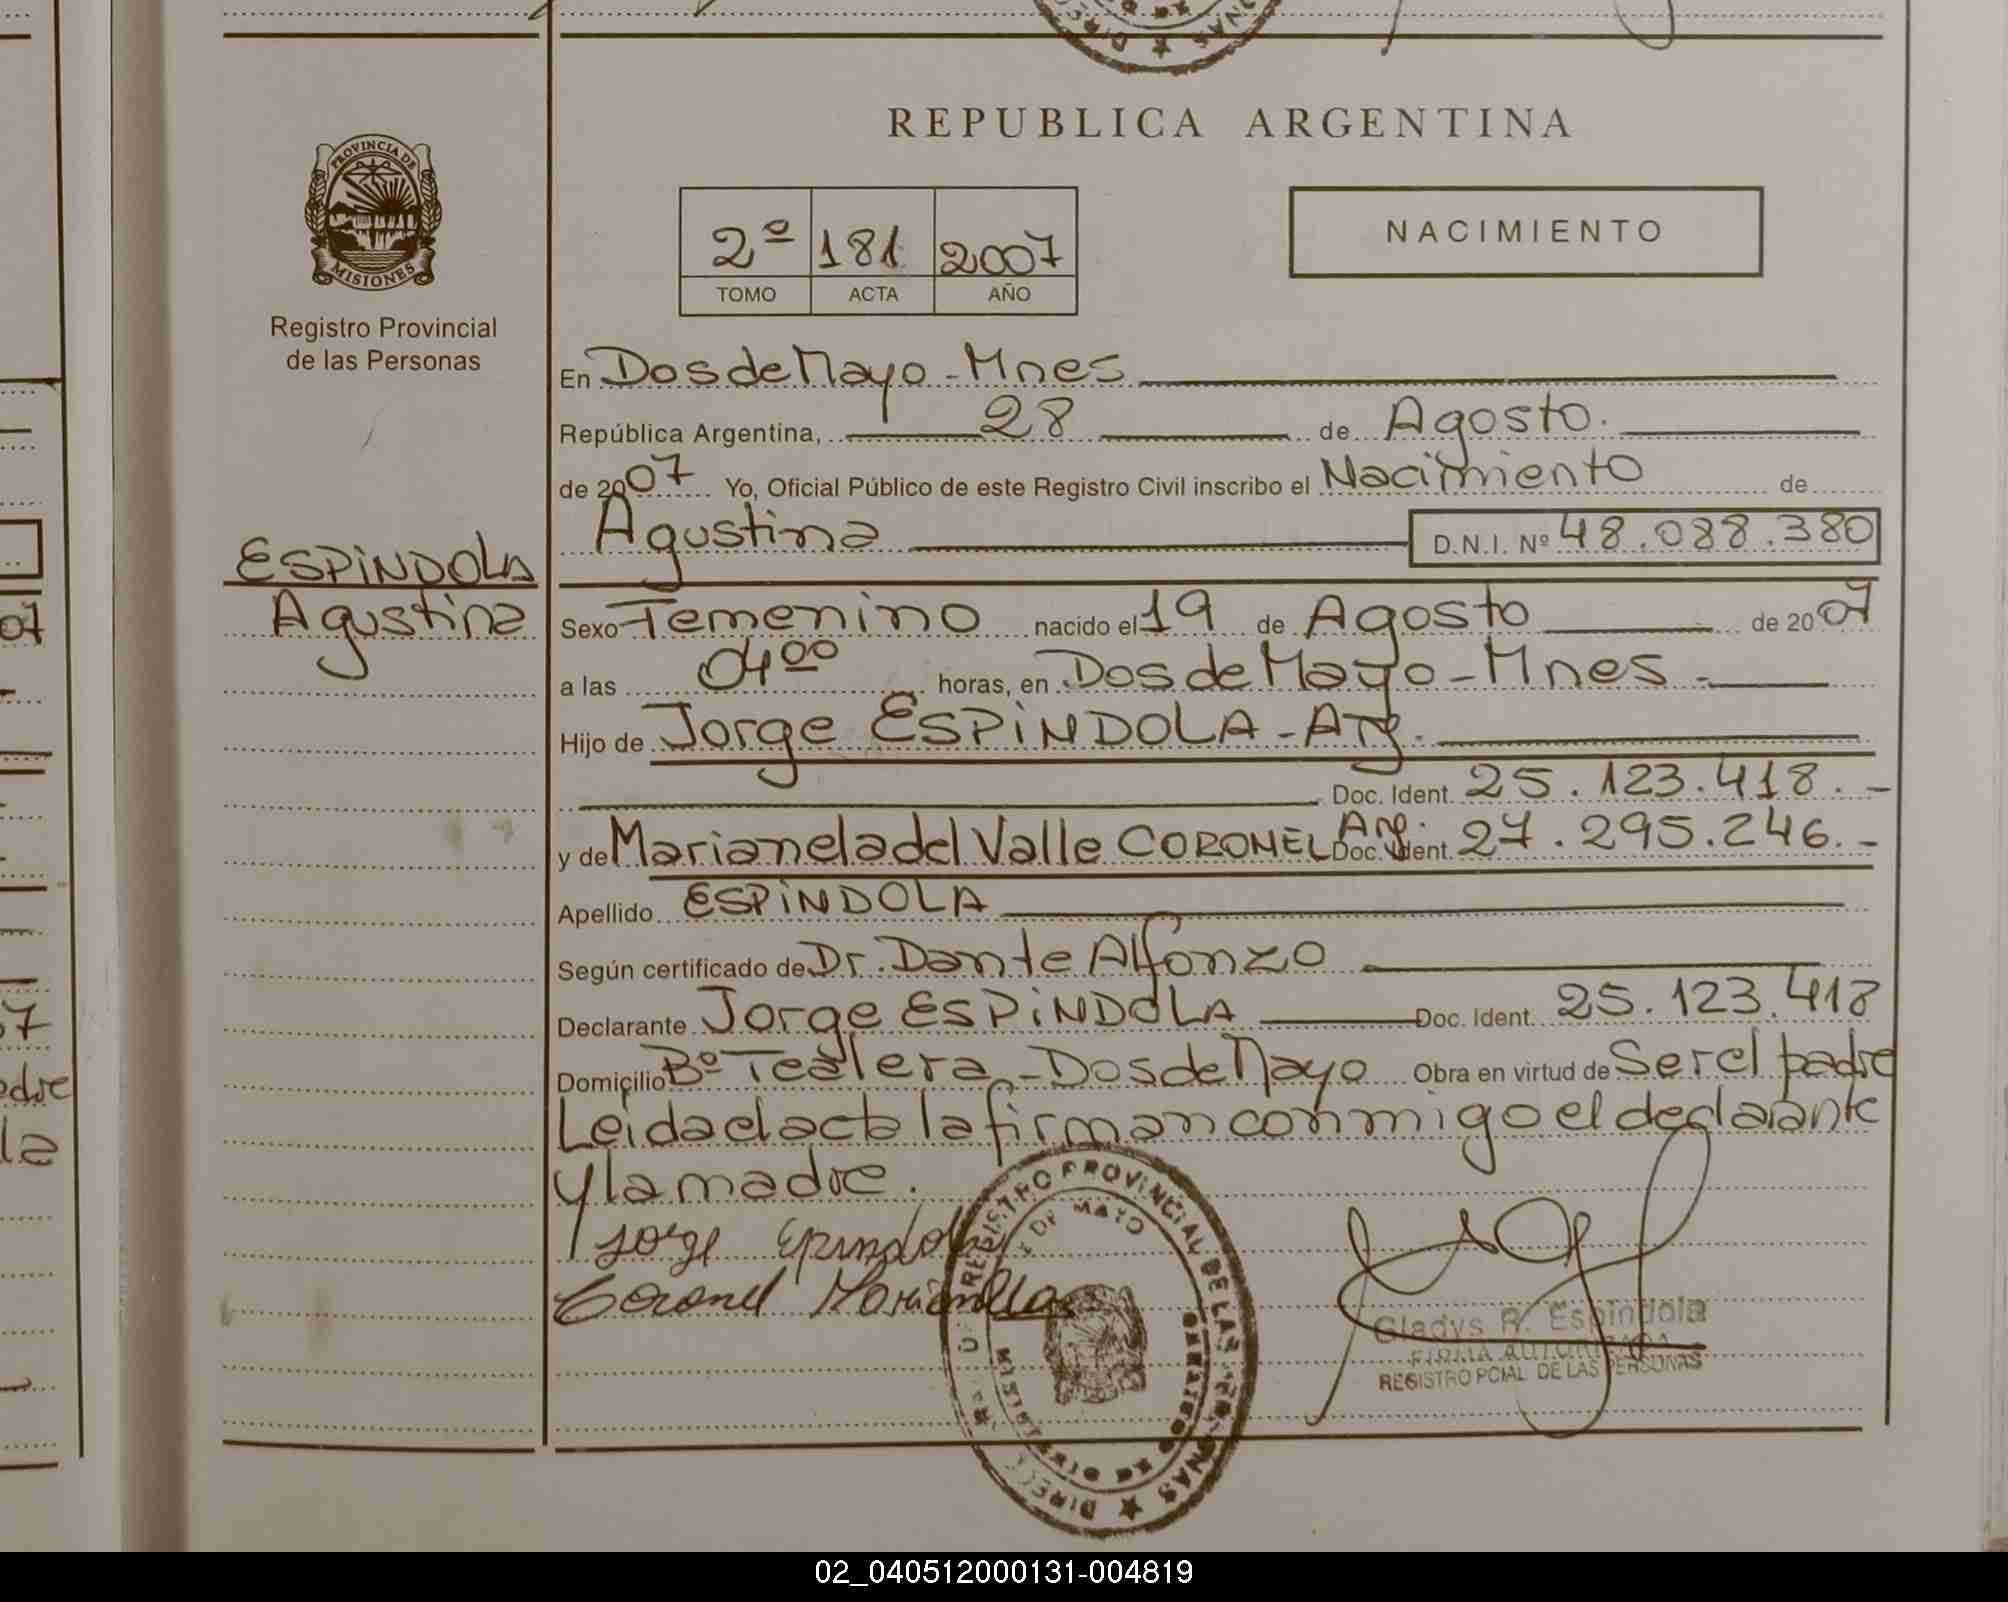 REPUBLICA ARGENTINA
PROVINCIA DE
MISIONES
Registro Provincial
de las Personas
2º 181 2007
TOMO ACTA AÑO
NACIMIENTO
En Dos de Mayo - Mnes
República Argentina, 28 de Agosto.
de 2007 Yo, Oficial Público de este Registro Civil inscribo el Nacimiento de
Agustina D.N.I. Nº 48.088.380
ESPINDOLA
Agustina
Sexo Femenino nacido el 19 de Agosto de 2007
a las 04 00 horas, en Dos de Mayo - Mnes -
Hijo de Jorge ESPINDOLA - Arg.
Doc. Ident. 25.123.418.-
y de Marianela del Valle CORONEL Arg. Doc. Ident. 27.295.246.-
Apellido ESPINDOLA
Según certificado de Dr. Dante Alfonzo
Declarante Jorge ESPINDOLA Doc. Ident. 25.123.418
Domicilio Bº Tealera - Dos de Mayo Obra en virtud de Ser el padre
Leida el acta la firman conmigo el declarante
y la madre.
Jorge Epindola
Coronel Marianella
REGISTRO PROVINCIAL DE LAS PERSONAS
DE MAYO
MISIONES
Gladys R. Espindola
FIRMA AUTORIZADA
REGISTRO PCIAL. DE LAS PERSONAS
02_040512000131-004819